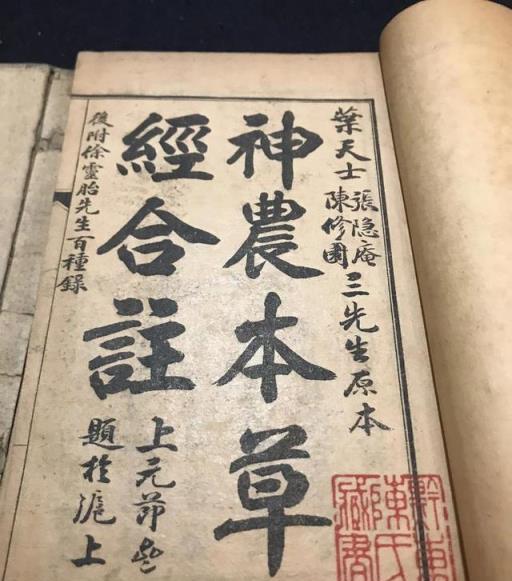 葉天士
張隐庵
陳修園
三先生原本
神農本草
經合註
上元節
題於滬上
後附徐靈胎先生百種錄
陳氏
藏書